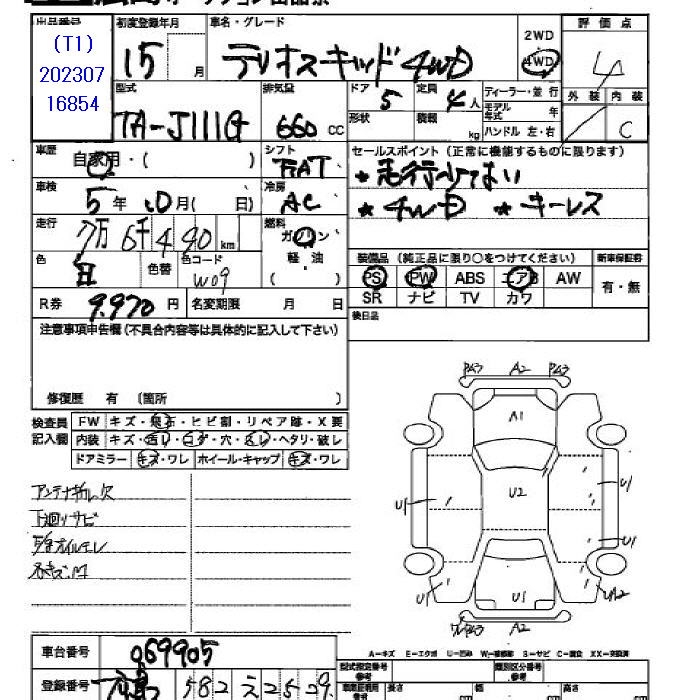 出品番号
(T1)
202307
16854
初度登録年月
15 月
車名・グレード
テリオスキッド 4WD
2WD
4WD
評価点
4
外装 内装
C
型式
TA-J111G
排気量
660 cc
ドア
5
定員
4 人
形状
積載 kg
ディーラー・並行
モデル年式 年
ハンドル 左・右
車歴
自家用・( )
シフト
FAT
セールスポイント (正常に機能するものに限ります)
★ 走行少ない
★ 4WD ★ キーレス
車検
5 年 10 月( 日)
冷房
AC
走行
7万 6千 4 90 km
燃料
ガソリン
軽油
( )
色
白
色替
色コード
W09
R券 9,970 円
名変期限 月 日
装備品 (純正品に限り○をつけてください)
新車保証書
PS PW ABS エアB AW
SR ナビ TV カワ
有・無
後日品
注意事項申告欄(不具合内容等は具体的に記入して下さい)
修復歴 有 (箇所 )
検査員記入欄
FW キズ・飛石・ヒビ割・リペア跡・X要
内装 キズ・汚レ・コゲ・穴・スレ・ヘタリ・破レ
ドアミラー キズ・ワレ ホイール・キャップ キズ・ワレ
アンテナ折レ欠
下廻リサビ
P43 A2 P43
A1
U2
U1 U1
U1
U1 U1
A2
A-キズ E-エクボ U-凹み W-補修跡 S-サビ C-腐食 XX-交換済
車台番号
069905
登録番号
582 え 2529
型式指定番号
類別区分番号
長さ cm
幅 cm
高さ cm